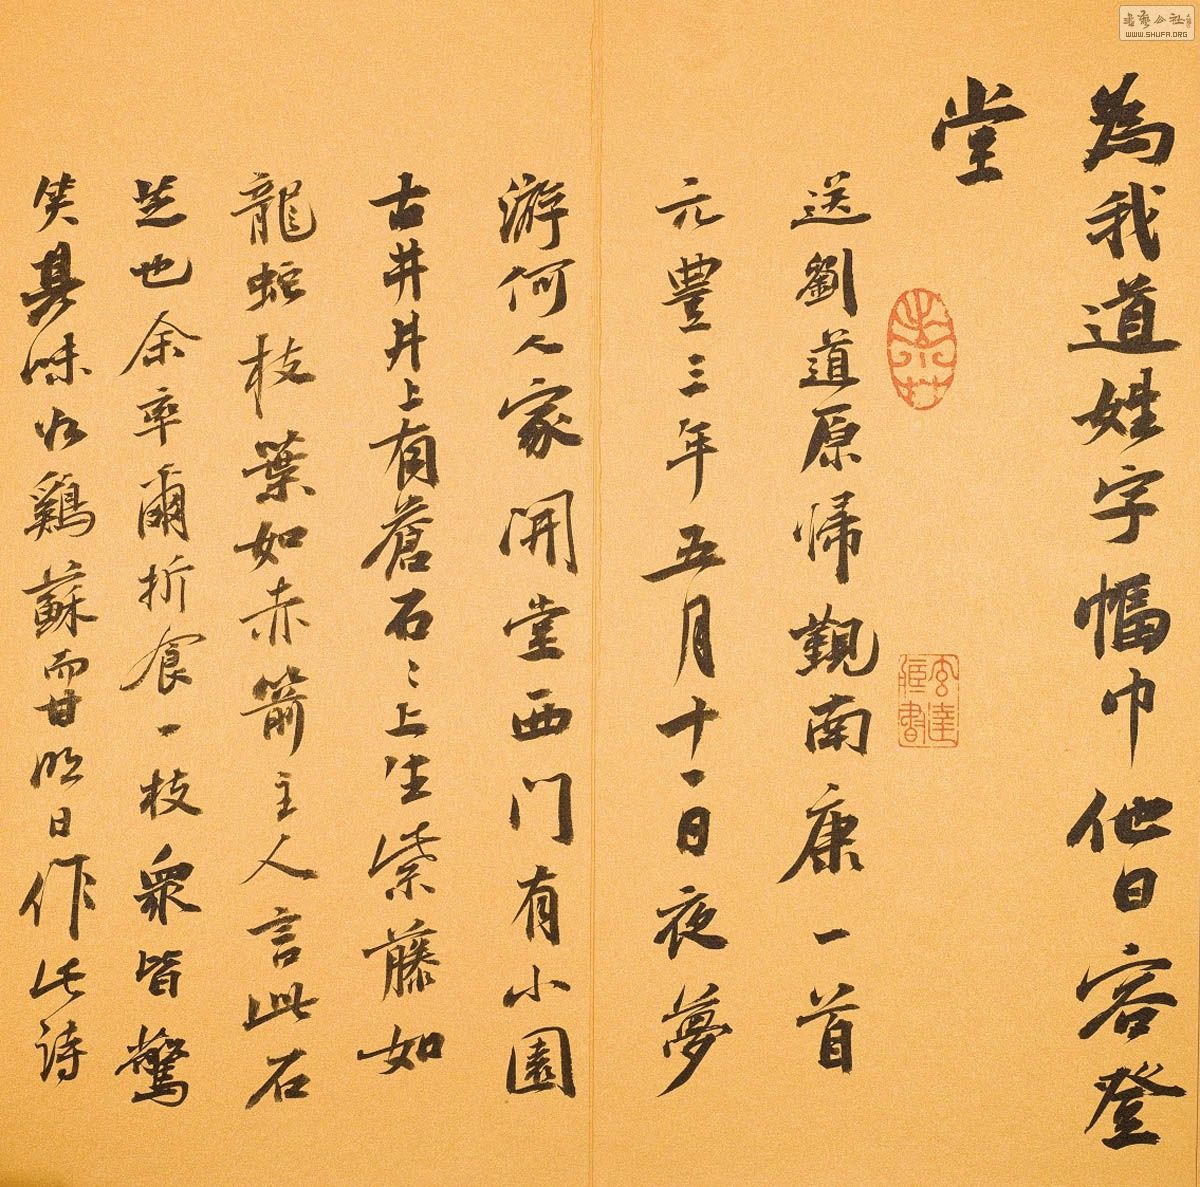 為我道姓字幅巾他日容登
堂
送劉道原歸覲南康一首
元豐三年五月十一日夜夢
游何人家開堂西门有小園
古井井上有蒼石〻上生紫藤如
龍蛇枝葉如赤箭主人言此石
芝也余率爾折食一枝衆皆驚
笑其味如鷄蘇而甘明日作此詩
書藝公社
WWW.SHUFA.ORG